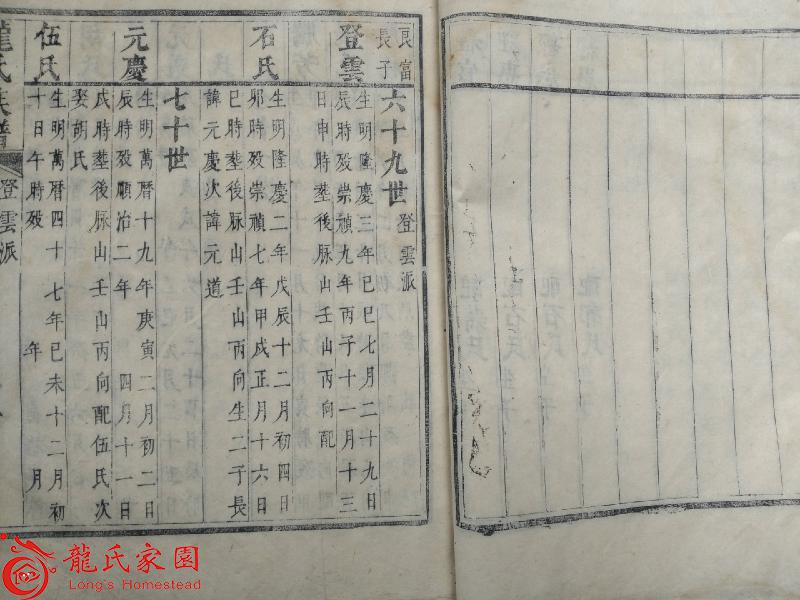 六十九世 登雲派
良富長子
登雲
生明隆慶三年巳巳七月二十九日
辰時殁崇禎九年丙子十一月十三
日申時塟後脉山壬山丙向配
石氏
生明隆慶二年戊辰十二月初四日
夘時殁崇禎七年甲戌正月十六日
巳時塟後脉山壬山丙向生二子長
諱元慶次諱元道
七十世
元慶
生明萬曆十九年庚寅二月初二日
辰時殁順治二年 四月十一日
戌時塟後脉山壬山丙向配伍氏次
娶胡氏
伍氏
生明萬曆四十七年巳未十二月初
十日午時殁 年 月
龍氏族譜 登雲派
龍氏家園
Long's Homestead